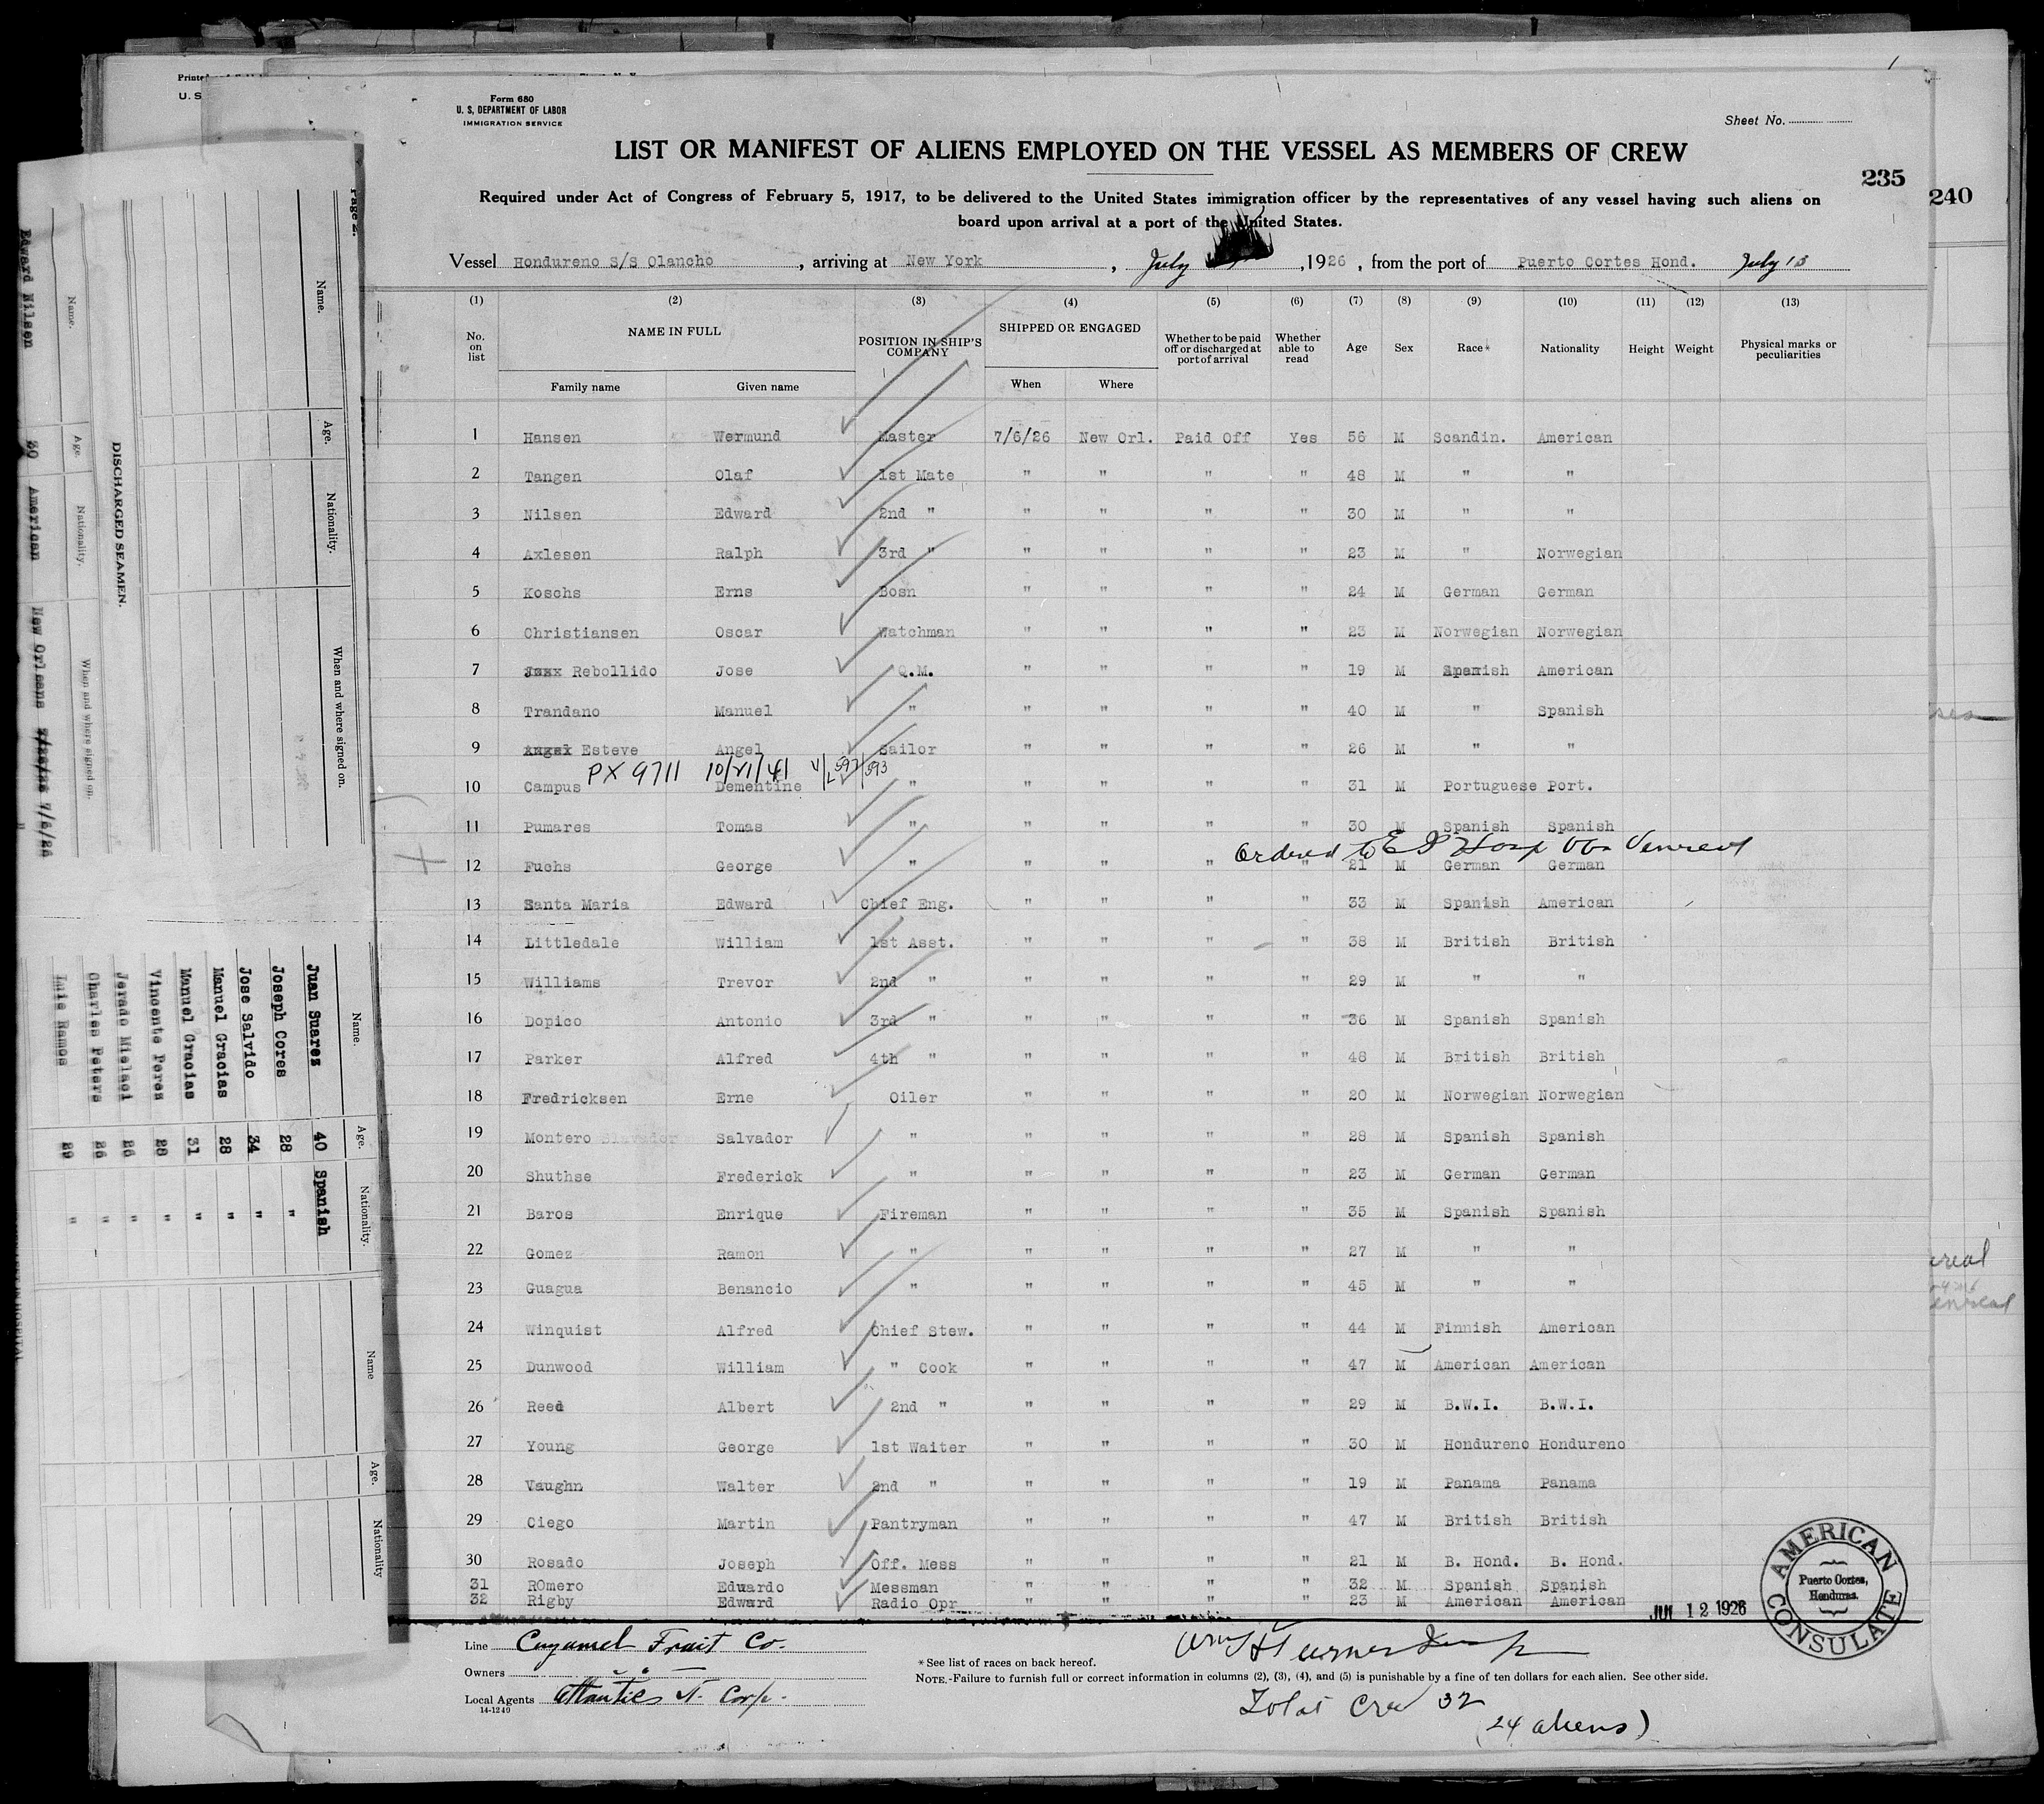 Form 680
U. S. DEPARTMENT OF LABOR
IMMIGRATION SERVICE
Sheet No.
LIST OR MANIFEST OF ALIENS EMPLOYED ON THE VESSEL AS MEMBERS OF CREW
235
240
Required under Act of Congress of February 5, 1917, to be delivered to the United States immigration officer by the representatives of any vessel having such aliens on
board upon arrival at a port of the United States.
Vessel Hondureno S/S Olancho, arriving at New York, July , 1926, from the port of Puerto Cortes Hond. July 13
(1) (2) (3) (4) (5) (6) (7) (8) (9) (10) (11) (12) (13)
No. on list NAME IN FULL Family name Given name POSITION IN SHIP'S COMPANY SHIPPED OR ENGAGED When Where Whether to be paid off or discharged at port of arrival Whether able to read Age Sex Race* Nationality Height Weight Physical marks or peculiarities
1 Hansen Wermund Master 7/6/26 New Orl. Paid Off Yes 56 M Scandin. American
2 Tangen Olaf 1st Mate " " " " 48 M " "
3 Nilsen Edward 2nd " " " " " 30 M " "
4 Axlesen Ralph 3rd " " " " " 23 M " Norwegian
5 Koschs Erns Bosn " " " " 24 M German German
6 Christiansen Oscar Watchman " " " " 23 M Norwegian Norwegian
7 Rebollido Jose Q.M. " " " " 19 M Spanish American
8 Trandano Manuel " " " " " 40 M " Spanish
9 Esteve Angel Sailor " " " " 26 M " "
PX 9711 10/21/41
10 Campus Dementine " " " " " 31 M Portuguese Port.
11 Pumares Tomas " " " " " 30 M Spanish Spanish
Ordered to E I Hosp Venreal
12 Fuchs George " " " " " 21 M German German
13 Santa Maria Edward Chief Eng. " " " " 33 M Spanish American
14 Littledale William 1st Asst. " " " " 38 M British British
15 Williams Trevor 2nd " " " " " 29 M " "
16 Dopico Antonio 3rd " " " " " 36 M Spanish Spanish
17 Parker Alfred 4th " " " " " 48 M British British
18 Fredricksen Erne Oiler " " " " 20 M Norwegian Norwegian
19 Montero Salvador " " " " " 28 M Spanish Spanish
20 Shuthse Frederick " " " " " 23 M German German
21 Baros Enrique Fireman " " " " 35 M Spanish Spanish
22 Gomez Ramon " " " " " 27 M " "
23 Guagua Benancio " " " " " 45 M " "
24 Winquist Alfred Chief Stew. " " " " 44 M Finnish American
25 Dunwood William " Cook " " " " 47 M American American
26 Reed Albert 2nd " " " " " 29 M B.W.I. B.W.I.
27 Young George 1st Waiter " " " " 30 M Hondureno Hondureno
28 Vaughn Walter 2nd " " " " " 19 M Panama Panama
29 Ciego Martin Pantryman " " " " 47 M British British
30 Rosado Joseph Off. Mess " " " " 21 M B. Hond. B. Hond.
31 ROmero Eduardo Messman " " " " 32 M Spanish Spanish
32 Rigby Edward Radio Opr " " " " 23 M American American
JUL 12 1926
AMERICAN CONSULATE
Puerto Cortes,
Honduras.
Line Cuyamel Fruit Co.
Owners " "
Local Agents Atlantic Corp.
14-1240
*See list of races on back hereof.
NOTE.-Failure to furnish full or correct information in columns (2), (3), (4), and (5) is punishable by a fine of ten dollars for each alien. See other side.
Total Crew 32
(24 aliens)
Page 2.
Name. Age. Nationality. When and where signed on.
DISCHARGED SEAMEN.
Name. Age. Nationality. When and where signed on.
Edward Nilsen 30 American New Orleans 7/6/26
Name. Age. Nationality. Name Age. Nationality
Juan Suarez 40 Spanish
Joseph Cores 28 "
Jose Salvido 34 "
Manuel Gracias 28 "
Manuel Gracias 31 "
Vincente Peres 28 "
Jerado Mielaci 26 "
Charles Peters 26 "
Luis Ramos 29 "